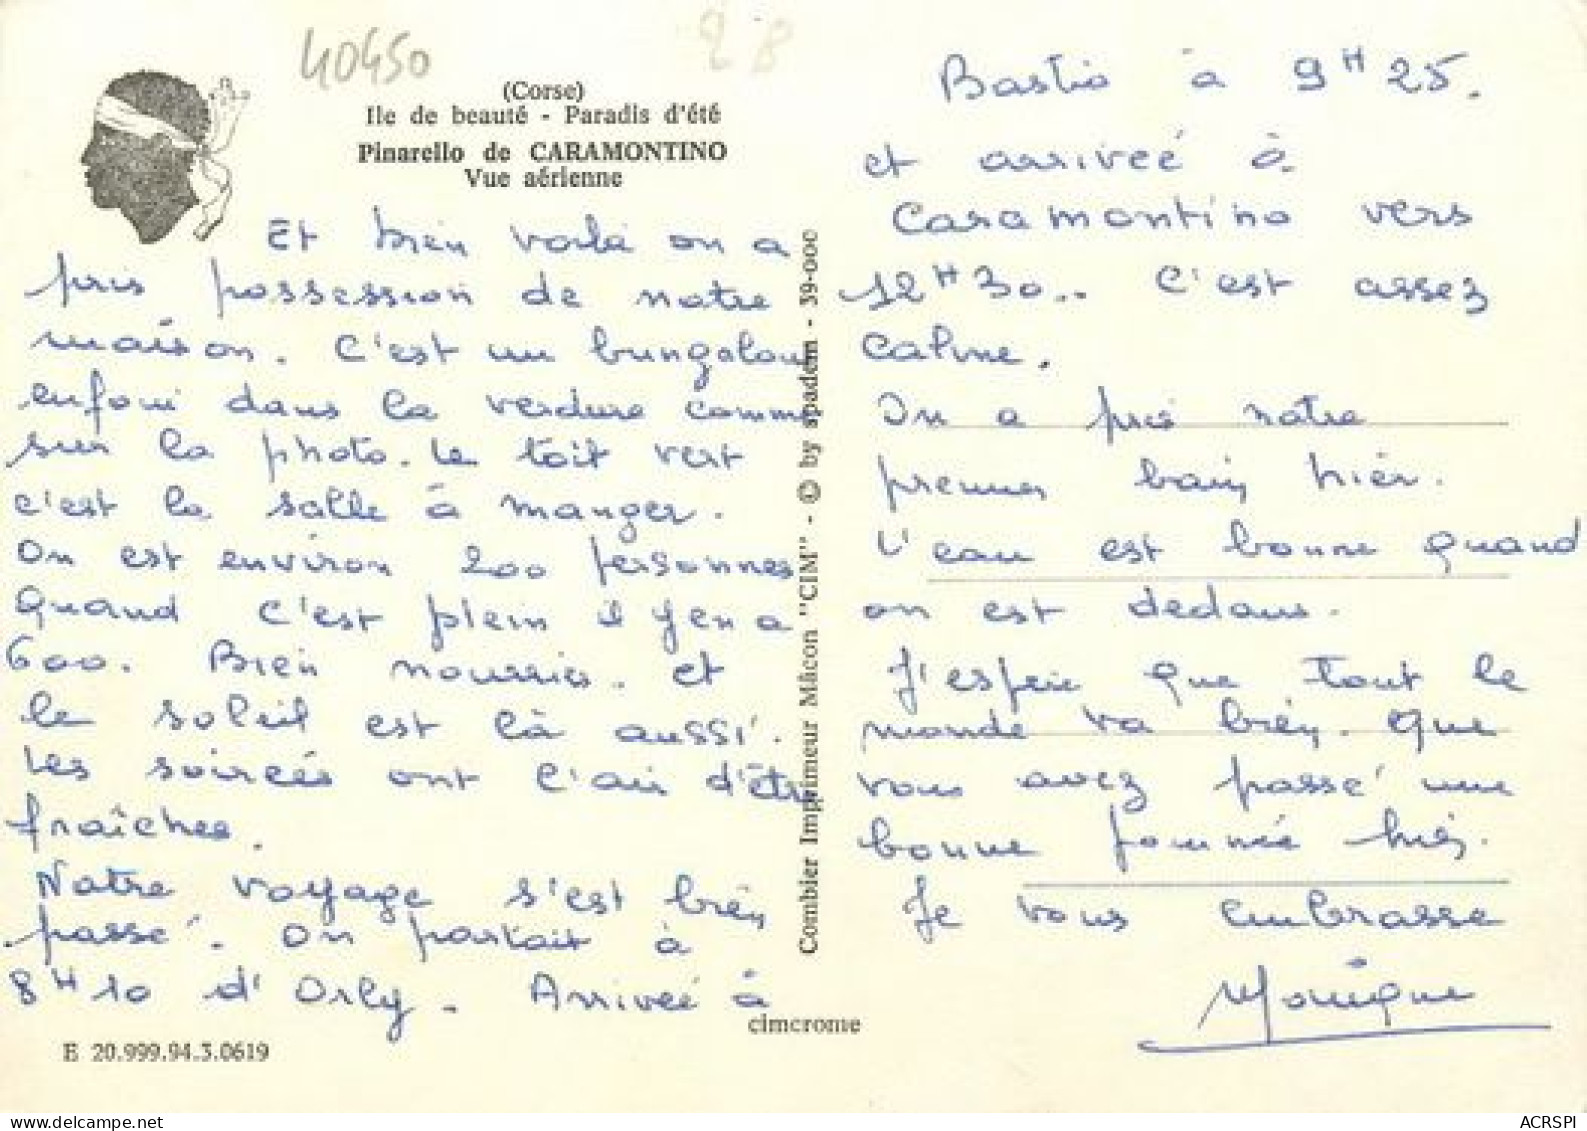 40450
2B
(Corse)
Ile de beauté - Paradis d'été
Pinarello de CARAMONTINO
Vue aérienne
Et bien voilà on a
pris possession de notre
maison. C'est un bungalow
enfoui dans la verdure comme
sur la photo. Le toit vert
c'est la salle à manger.
On est environ 200 personnes
Quand c'est plein il y en a
600. Bien nourries. et
le soleil est là aussi.
Les soirées ont l'air d'être
fraîches.
Notre voyage s'est bien
passé. On partait à
8H10 d'Orly. Arrivée à
E 20.999.94.3.0619
Combier Imprimeur Mâcon "CIM" - © by spadem - 39-00C
cimcrome
Bastia à 9H25.
et arrivée à
Caramontino vers
12H30.. C'est assez
calme.
On a pris notre
premier bain hier.
L'eau est bonne quand
on est dedans.
J'espère que tout le
monde va bien. Que
vous avez passé une
bonne journée hier.
Je vous embrasse
Monique
ACRSPI